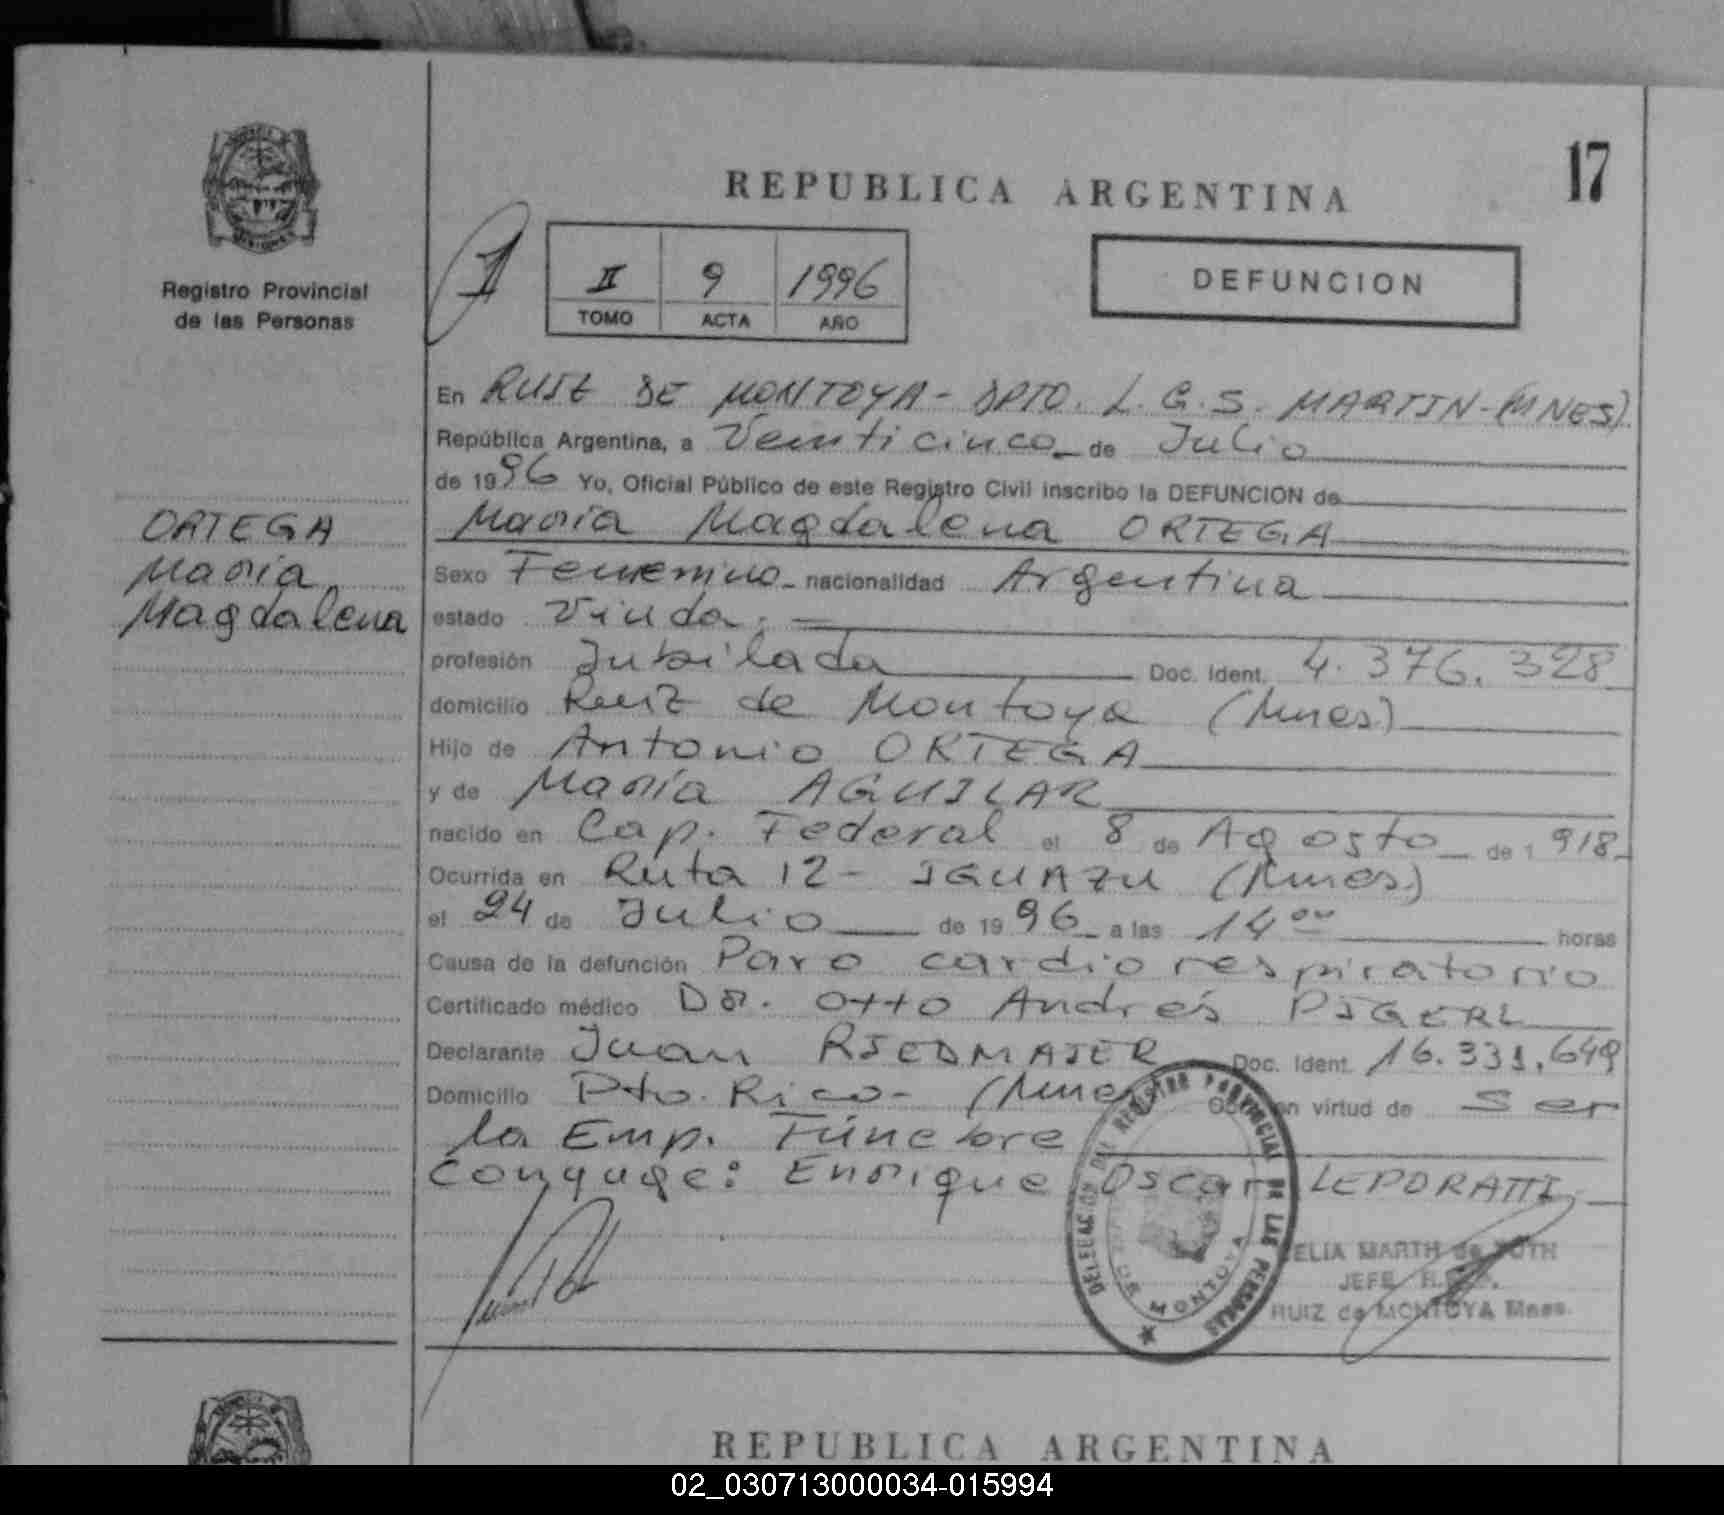 17
REPUBLICA ARGENTINA
Registro Provincial
de las Personas
1
II 9 1996
TOMO ACTA AÑO
DEFUNCION
En RUIZ DE MONTOYA - DPTO. L. G. S. MARTIN - (MNES)
República Argentina, a Veinticinco de Julio
de 1996 Yo, Oficial Público de este Registro Civil inscribo la DEFUNCION de
María Magdalena ORTEGA
ORTEGA
María
Magdalena
Sexo Femenino - nacionalidad Argentina
estado Viuda. =
profesión Jubilada Doc. Ident. 4.376.328
domicilio Ruiz de Montoya (Mnes)
Hijo de Antonio ORTEGA
y de María AGUILAR
nacido en Cap. Federal el 8 de Agosto de 1918
Ocurrida en Ruta 12 - IGUAZU (Mnes)
el 24 de Julio de 1996 a las 14 oo horas
Causa de la defunción Paro cardio respiratorio
Certificado médico Dr. Otto Andrés PIGERL
Declarante Juan RIEDMAIER Doc. Ident. 16.331.649
Domicilio Pto. Rico - (Mnes) virtud de Ser
la Emp. Fúnebre
Conyuge: Enrique Oscar LEPORATTI
DELEGACION DEL REGISTRO PROVINCIAL DE LAS PERSONAS
DE MONTOYA
ELIA MARTH de TOTH
JEFE
RUIZ de MONTOYA Mnes.
REPUBLICA ARGENTINA
02_030713000034-015994